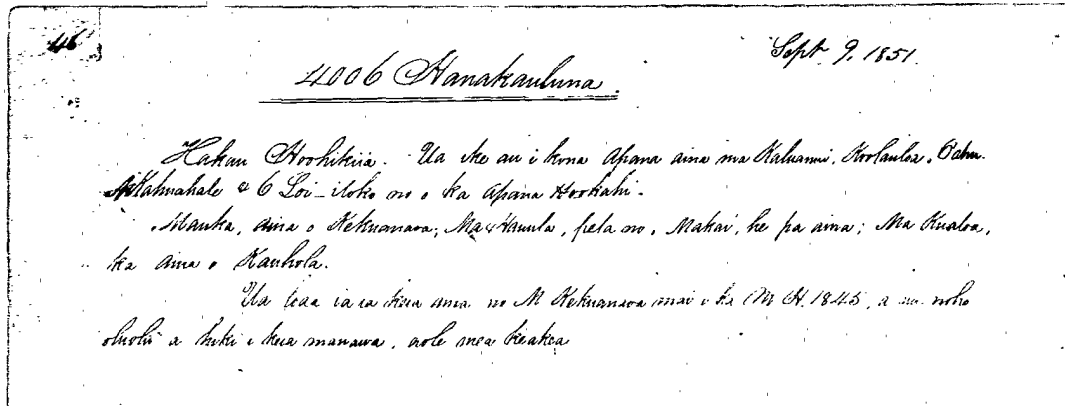 46
Sept. 9. 1851.
4006 Hanakauluna.
Hakau Hoohikiia. Ua ike au i kona Apana aina ma Kaluanui, Koolauloa, Oahu.
Kahuahale & 6 Loi iloko no o ka apana Hookahi.
Mauka, aina o Kekuanaoa; Ma Hauula, pela no. Makai, he pa aina; Ma Kualoa,
ka aina o Kauhola.
Ua loaa ia ia keia aina no M Kekuanaoa mai i ka M H. 1845, a ua noho
oluolu a hiki i keia manawa, aole mea keakea